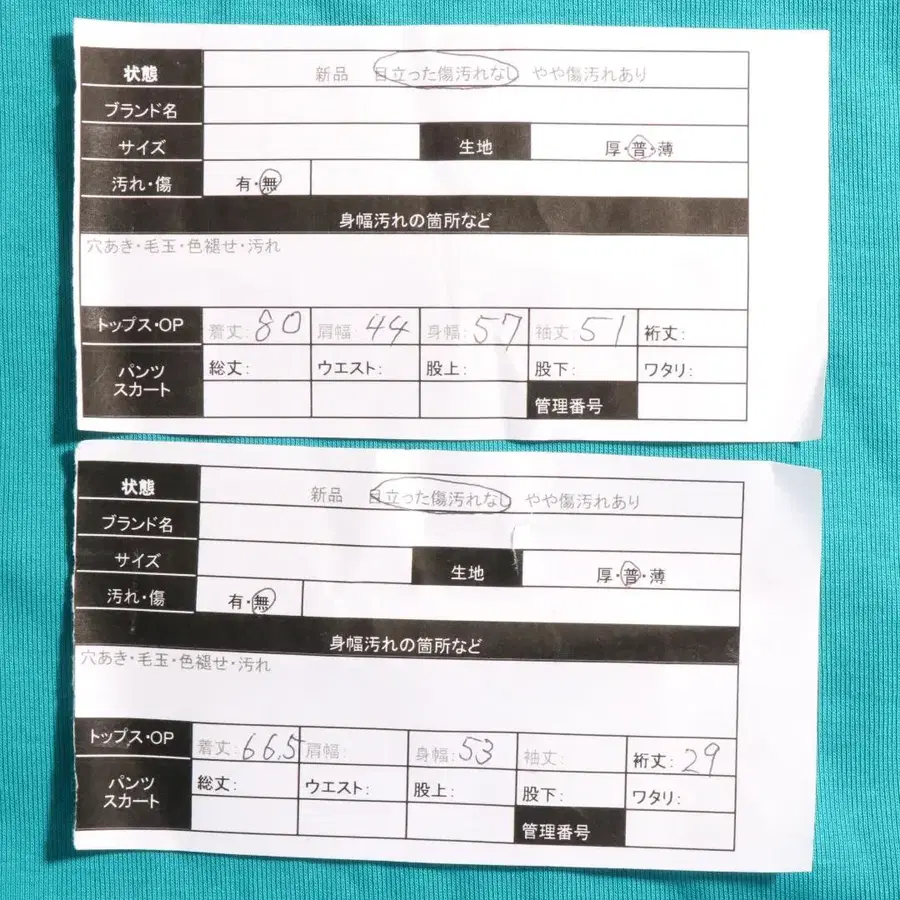 状態 新品 目立った傷汚れなし やや傷汚れあり
ブランド名
サイズ 生地 厚・普・薄
汚れ・傷 有・無
身幅汚れの箇所など
穴あき・毛玉・色褪せ・汚れ
トップス・OP 着丈:80 肩幅:44 身幅:57 袖丈:51 裄丈:
パンツ 総丈: ウエスト: 股上: 股下: ワタリ:
スカート
管理番号
状態 新品 目立った傷汚れなし やや傷汚れあり
ブランド名
サイズ 生地 厚・普・薄
汚れ・傷 有・無
身幅汚れの箇所など
穴あき・毛玉・色褪せ・汚れ
トップス・OP 着丈:66.5 肩幅: 身幅:53 袖丈: 裄丈:29
パンツ 総丈: ウエスト: 股上: 股下: ワタリ:
スカート
管理番号